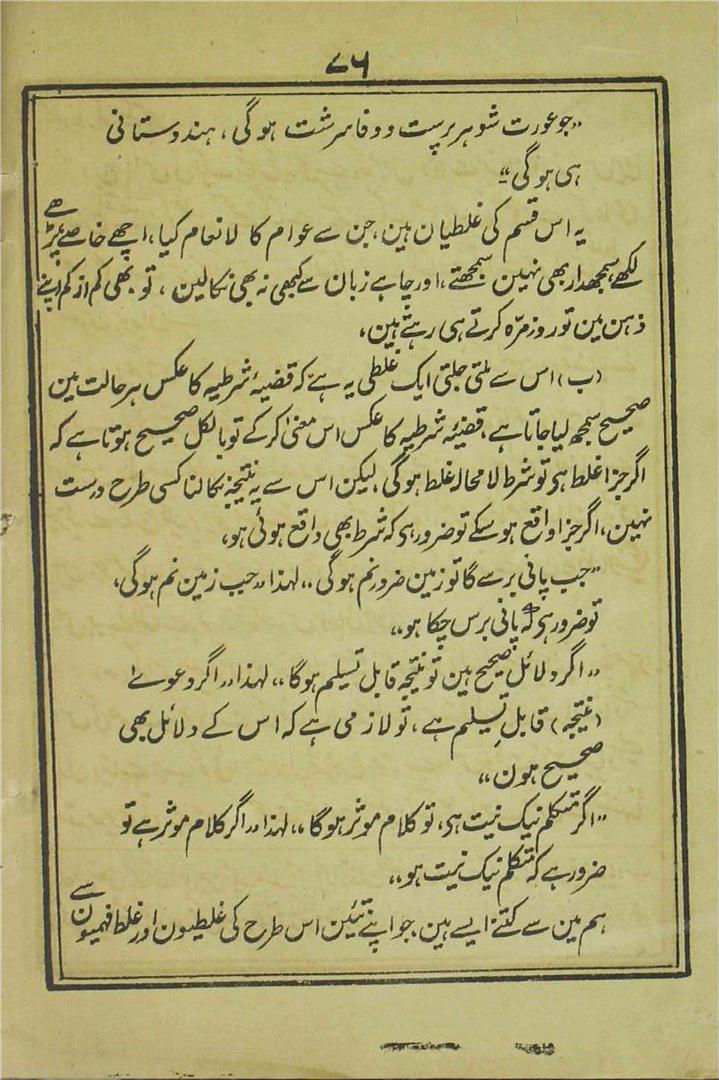 ۷۶
„جو عورت شوہر پرست و وفا سرشت ہوگی، ہندوستانی
ہی ہوگی“
یہ اس قسم کی غلطیان ہین، جن سے عوام کا لانعام کیا، اچھے خاصے پڑھے
لکھے، سمجھدار بھی نہین سمجھتے، اور چاہے زبان سے کبھی نہ بھی نکالین، تو بھی کم از کم اپنے
ذہن مین تو روز مرّہ کرتے ہی رہتے ہین،
(ب) اس سے ملتی جلتی ایک غلطی یہ ہے کہ قضیۂ شرطیہ کا عکس ہر حالت مین
صحیح سمجھ لیا جاتا ہے، قضیۂ شرطیہ کا عکس اس معنی کر کے تو بالکل صحیح ہوتا ہے کہ
اگر جزا غلط ہی تو شرط لا محالہ غلط ہوگی، لیکن اس سے یہ نتیجہ نکالنا کسی طرح درست
نہین، اگر جزا واقع ہو سکے تو ضرور ہی کہ شرط بھی واقع ہوئی ہو،
„جب پانی برسے گا تو زمین ضرور نم ہوگی„ لہذا „جب زمین نم ہوگی،
تو ضرور ہی کہ پانی برس چکا ہو„
„اگر دلائل صحیح ہین تو نتیجہ قابل تسلیم ہوگا„ لہذا „اگر دعوے
(نتیجہ) قابل تسلیم ہے، تو لازمی ہے کہ اس کے دلائل بھی
صحیح ہون„
„اگر متکلم نیک نیت ہی، تو کلام موثر ہوگا„ لہذا „اگر کلام موثر ہے تو
ضرور ہے کہ متکلم نیک نیت ہو„
ہم مین سے کتنے ایسے ہین جو اپنے تئین اس طرح کی غلطیون اور غلط فہمیون سے